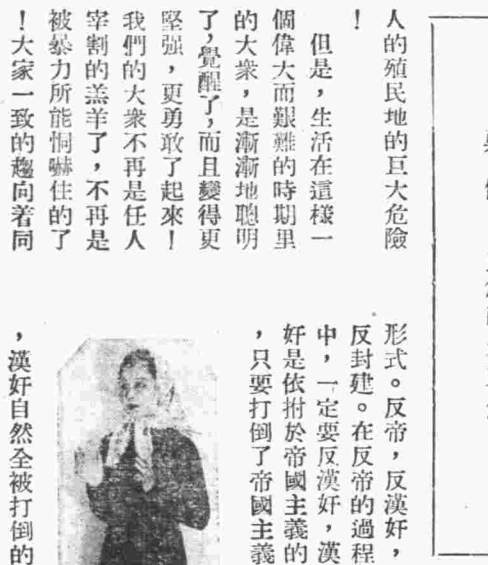 人的殖民地的巨大危險
！
但是，生活在這樣一
個偉大而艱難的時期里
的大衆，是漸漸地聰明
了，覺醒了，而且變得更
堅强，更勇敢了起來！
我們的大衆不再是任人
宰割的羔羊了，不再是
被暴力所能恫嚇住的了
！大家一致的趨向着同
形式。反帝，反漢奸，
反封建。在反帝的過程
中，一定要反漢奸，漢
奸是依拊於帝國主義的
，只要打倒了帝國主義
，漢奸自然全被打倒的